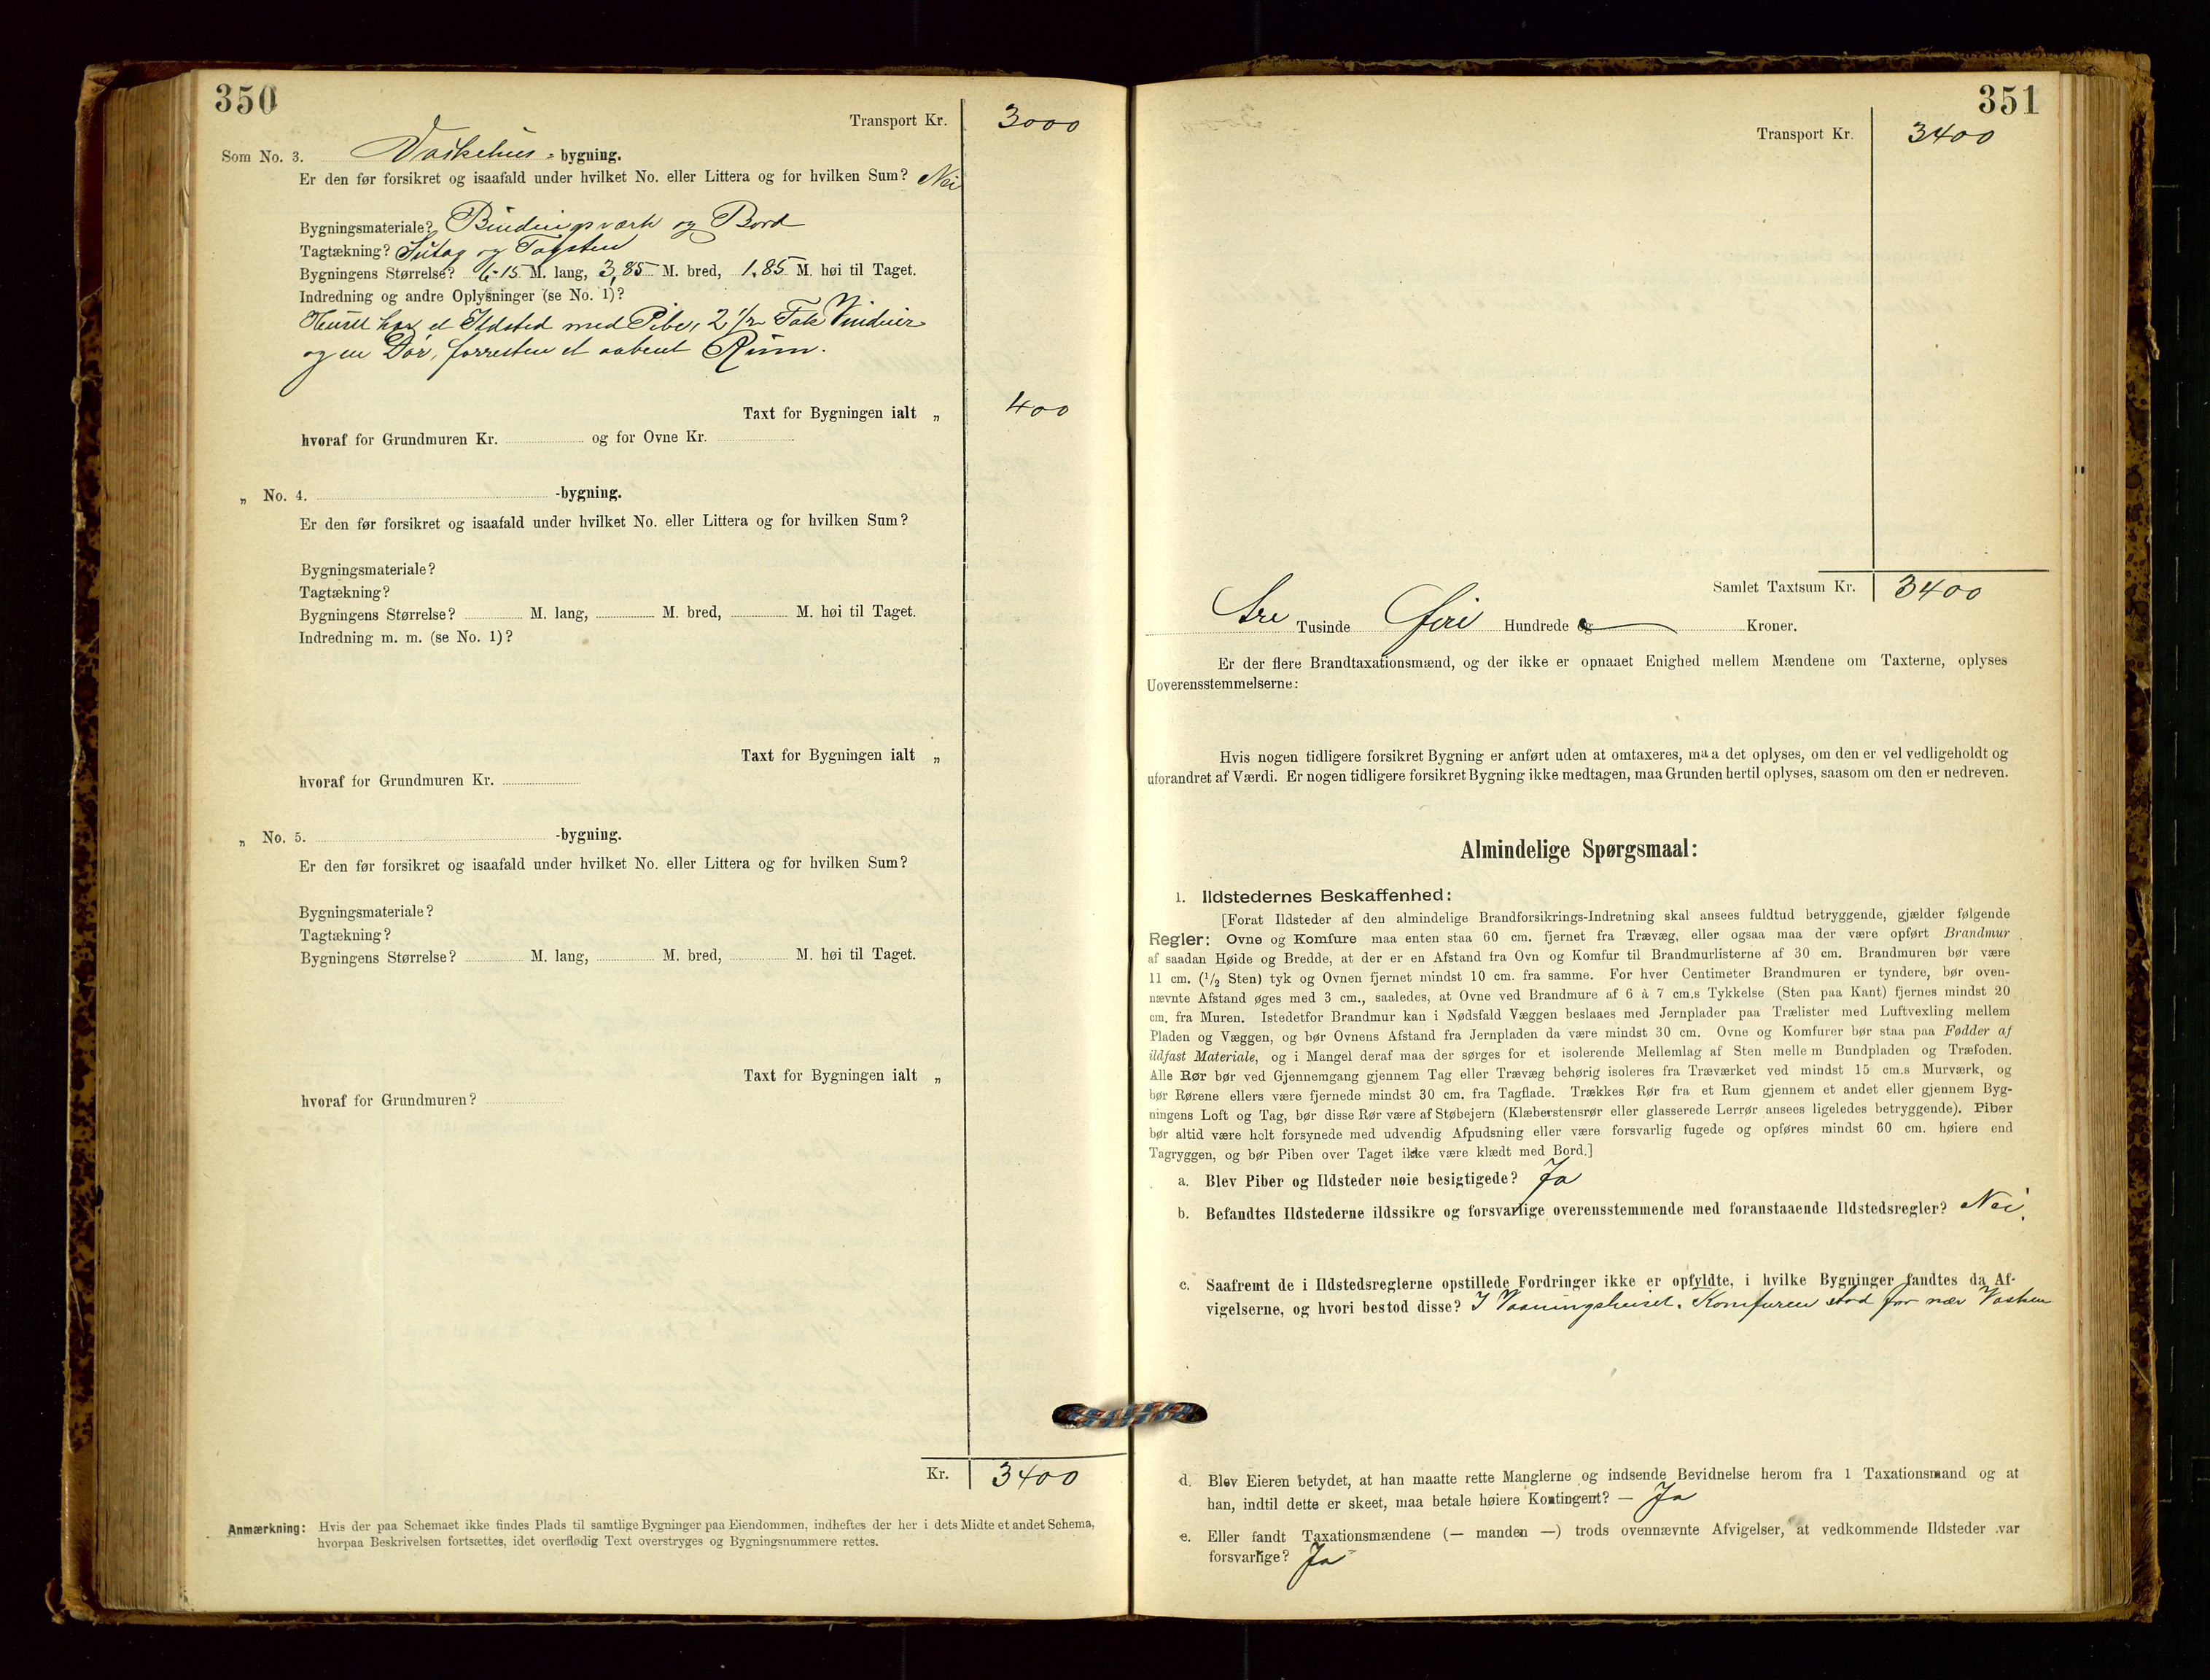 350
Transport Kr. 3000
Som No. 3. Vaskehus-bygning.
Er den før forsikret og isaafald under hvilket No. eller Littera og for hvilken Sum? Nei
Bygningsmateriale? Bindingsværk og Bord
Tagtækning? Sutag og Tagsten
Bygningens Størrelse? 6.15 M. lang, 3,85 M. bred, 1.85 M. høi til Taget.
Indredning og andre Oplysninger (se No. 1)?
Huset har et Ildsted med Pibe, 2 1/2 Fak Vinduer
og en Dør, forresten et aabent Rum.
Taxt for Bygningen ialt „ 400
hvoraf for Grundmuren Kr. og for Ovne Kr.
„ No. 4. -bygning.
Er den før forsikret og isaafald under hvilket No. eller Littera og for hvilken Sum?
Bygningsmateriale?
Tagtækning?
Bygningens Størrelse? M. lang, M. bred, M. høi til Taget.
Indredning m. m. (se No. 1)?
Taxt for Bygningen ialt „
hvoraf for Grundmuren Kr.
„ No. 5. -bygning.
Er den før forsikret og isaafald under hvilket No. eller Littera og for hvilken Sum?
Bygningsmateriale?
Tagtækning?
Bygningens Størrelse? M. lang, M. bred, M. høi til Taget.
Taxt for Bygningen ialt „
hvoraf for Grundmuren?
Kr. 3400
Anmærkning: Hvis der paa Schemaet ikke findes Plads til samtlige Bygninger paa Eiendommen, indheftes der her i dets Midte et andet Schema,
hvorpaa Beskrivelsen fortsættes, idet overflødig Text overstryges og Bygningsnummere rettes.
351
Transport Kr. 3400
Samlet Taxtsum Kr. 3400
Tre Tusinde Fire Hundrede og Kroner.
Er der flere Brandtaxationsmænd, og der ikke er opnaaet Enighed mellem Mændene om Taxterne, oplyses
Uoverensstemmelserne:
Hvis nogen tidligere forsikret Bygning er anført uden at omtaxeres, maa det oplyses, om den er vel vedligeholdt og
uforandret af Værdi. Er nogen tidligere forsikret Bygning ikke medtagen, maa Grunden hertil oplyses, saasom om den er nedreven.
Almindelige Spørgsmaal:
1. Ildstedernes Beskaffenhed:
[Forat Ildsteder af den almindelige Brandforsikrings-Indretning skal ansees fuldtud betryggende, gjælder følgende
Regler: Ovne og Komfure maa enten staa 60 cm. fjernet fra Trævæg, eller ogsaa maa der være opført Brandmur
af saadan Høide og Bredde, at der er en Afstand fra Ovn og Komfur til Brandmurlisterne af 30 cm. Brandmuren bør være
11 cm. (1/2 Sten) tyk og Ovnen fjernet mindst 10 cm. fra samme. For hver Centimeter Brandmuren er tyndere, bør oven-
nævnte Afstand øges med 3 cm., saaledes, at Ovne ved Brandmure af 6 à 7 cm.s Tykkelse (Sten paa Kant) fjernes mindst 20
cm. fra Muren. Istedetfor Brandmur kan i Nødsfald Væggen beslaaes med Jernplader paa Trælister med Luftvexling mellem
Pladen og Væggen, og bør Ovnens Afstand fra Jernpladen da være mindst 30 cm. Ovne og Komfurer bør staa paa Fødder af
ildfast Materiale, og i Mangel deraf maa der sørges for et isolerende Mellemlag af Sten mellem Bundpladen og Træfoden.
Alle Rør bør ved Gjennemgang gjennem Tag eller Trævæg behørig isoleres fra Træværket ved mindst 15 cm.s Murværk, og
bør Rørene ellers være fjernede mindst 30 cm. fra Tagflade. Trækkes Rør fra et Rum gjennem et andet eller gjennem Byg-
ningens Loft og Tag, bør disse Rør være af Støbejern (Klæberstensrør eller glasserede Lerrør ansees ligeledes betryggende). Piber
bør altid være helt forsynede med udvendig Afpudsning eller være forsvarlig fugede og opføres mindst 60 cm. høiere end
Tagryggen, og bør Piben over Taget ikke være klædt med Bord.]
a. Blev Piber og Ildsteder nøie besigtigede? Ja
b. Befandtes Ildstederne ildssikre og forsvarlige overensstemmende med foranstaaende Ildstedsregler? Nei.
c. Saafremt de i Ildstedsreglerne opstillede Fordringer ikke er opfyldte, i hvilke Bygninger fandtes da Af-
vigelserne, og hvori bestod disse? I Vaaningshuset. Komfuren stod for nær
d. Blev Eieren betydet, at han maatte rette Manglerne og indsende Bevidnelse herom fra 1 Taxationsmand og at
han, indtil dette er skeet, maa betale høiere Kontingent? — Ja
e. Eller fandt Taxationsmændene (— manden —) trods ovennævnte Afvigelser, at vedkommende Ildsteder var
forsvarlige? Ja